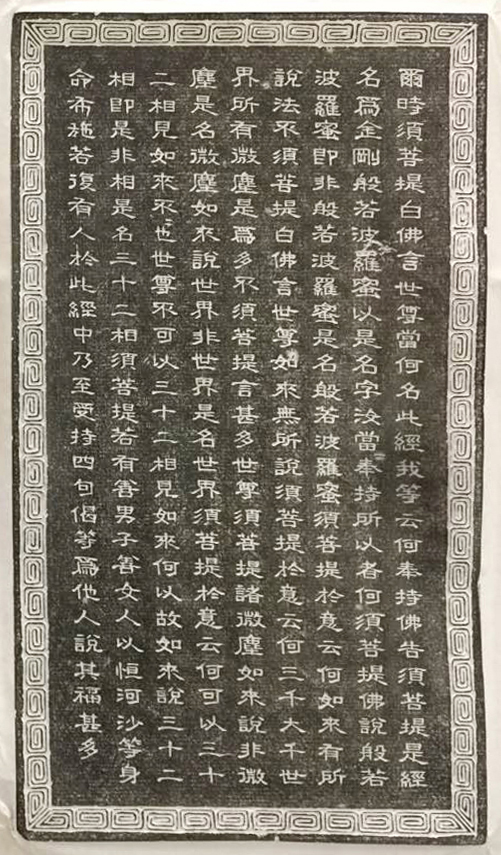 爾時須菩提白佛言世尊當何名此經我等云何奉持佛告須菩提是經
名爲金剛般若波羅蜜以是名字汝當奉持所以者何須菩提佛說般若
波羅蜜即非般若波羅蜜是名般若波羅蜜須菩提於意云何如來有所
說法不須菩提白佛言世尊如來無所說須菩提於意云何三千大千世
界所有微塵是爲多不須菩提言甚多世尊須菩提諸微塵如來說非微
塵是名微塵如來說世界非世界是名世界須菩提於意云何可以三十
二相見如來不也世尊不可以三十二相見如來何以故如來說三十二
相即是非相是名三十二相須菩提若有善男子善女人以恒河沙等身
命布施若復有人於此經中乃至受持四句偈等爲他人說其福甚多